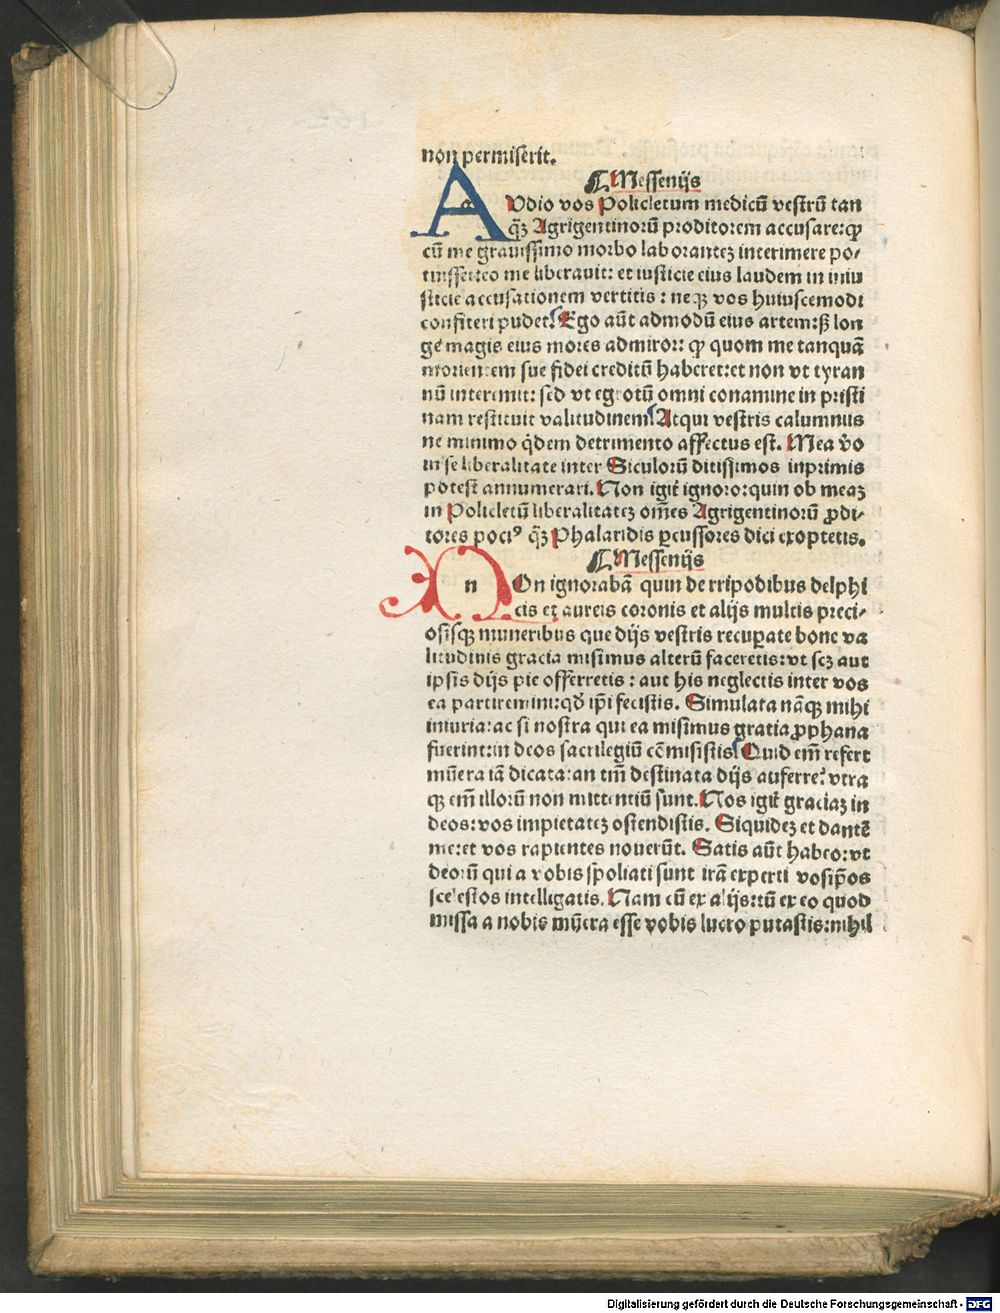 non permiserit.
¶ Messenijs
AUdio vos Policletum medicū vestrū tan
q̄ȝ Agrigentinorū proditorem accusare: ꝙ
cū me grauissimo morbo laborantez interimere po/
tuisset: eo me liberauit: et iusticie eius laudem in iniu
sticie accusationem vertitis: neqꝫ vos huiuscemodi
confiteri pudet. Ego aūt admodū eius artem: sꝫ lon
ge magis eius mores admiror: ꝙ quom me tanquā
morientem sue fidei creditū haberet: et non vt tyran
nū interemit: sed vt egrotū omni conamine in pristi
nam restituit valitudinem. Atqui vestris calumniis
ne minimo q̇dem detrimento affectus est. Mea v̄o
in se liberalitate inter Siculorū ditissimos inprimis
potest annumerari. Non igit̄ ignoro: quin ob meaz
in Policletū liberalitatez om̄es Agrigentinorū ꝓdi-
tores pociꝰ q̄ȝ Phalaridis ꝑcussores dici exoptetis.
¶ Messenijs
n
NOn ignorabā quin de rripodibus delphi
cis et aureis coronis et alijs multis preci/
osisqꝫ muneribus que dijs vestris recuꝑate bone va
litudinis gracia misimus alterū faceretis: vt scz aut
ipsis dijs pie offerretis: aut his neglectis inter vos
ea partiremini: qḋ ip̄i fecistis. Simulata nāqꝫ mihi
iniuria: ac si nostra qui ea misimus gratia ꝓphana
fuerint: in deos sacrilegiū cōmisistis. Quid em̄ refert
mūera iā dicata: an tm̄ destinata dijs auferre? vtra
qꝫ em̄ illorū non mittentiū sunt. Nos igit̄ graciaz in
deos: vos impietatez ostendistis. Siquidez et dantē
me: et vos rapientes nouerūt. Satis aūt habeo: vt
deorū qui a vobis spoliati sunt irā experti vosip̄os
scelestos intelligatis. Nam cū ex alijs: tū ex eo quod
missa a nobis mūera esse vobis lucro putastis: nihil
Digitalisierung gefördert durch die Deutsche Forschungsgemeinschaft - DFG